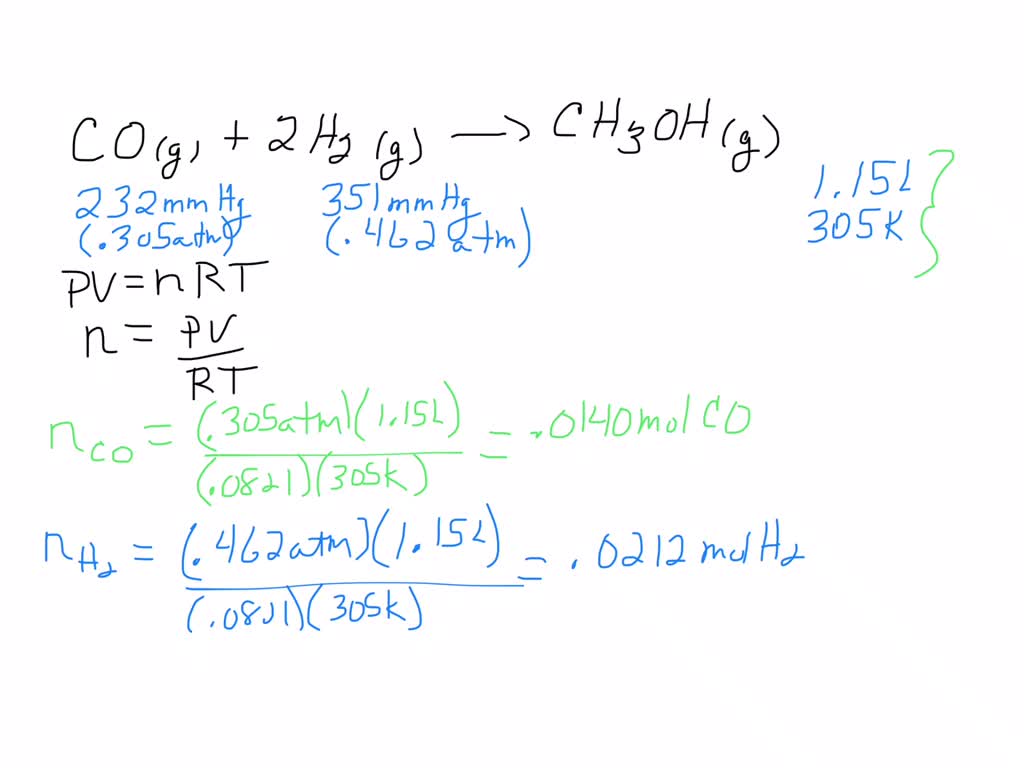 CO(g) + 2H₂(g) → CH₃OH(g)
232mmHg 351mmHg 1.15L
(.305atm) (.462atm) 305K
PV=nRT
n = PV/RT
n_CO = (.305atm)(1.15L)/(.0821)(305k) = .0140molCO
n_H₂ = (.462atm)(1.15L)/(.0821)(305k) = .0212molH₂